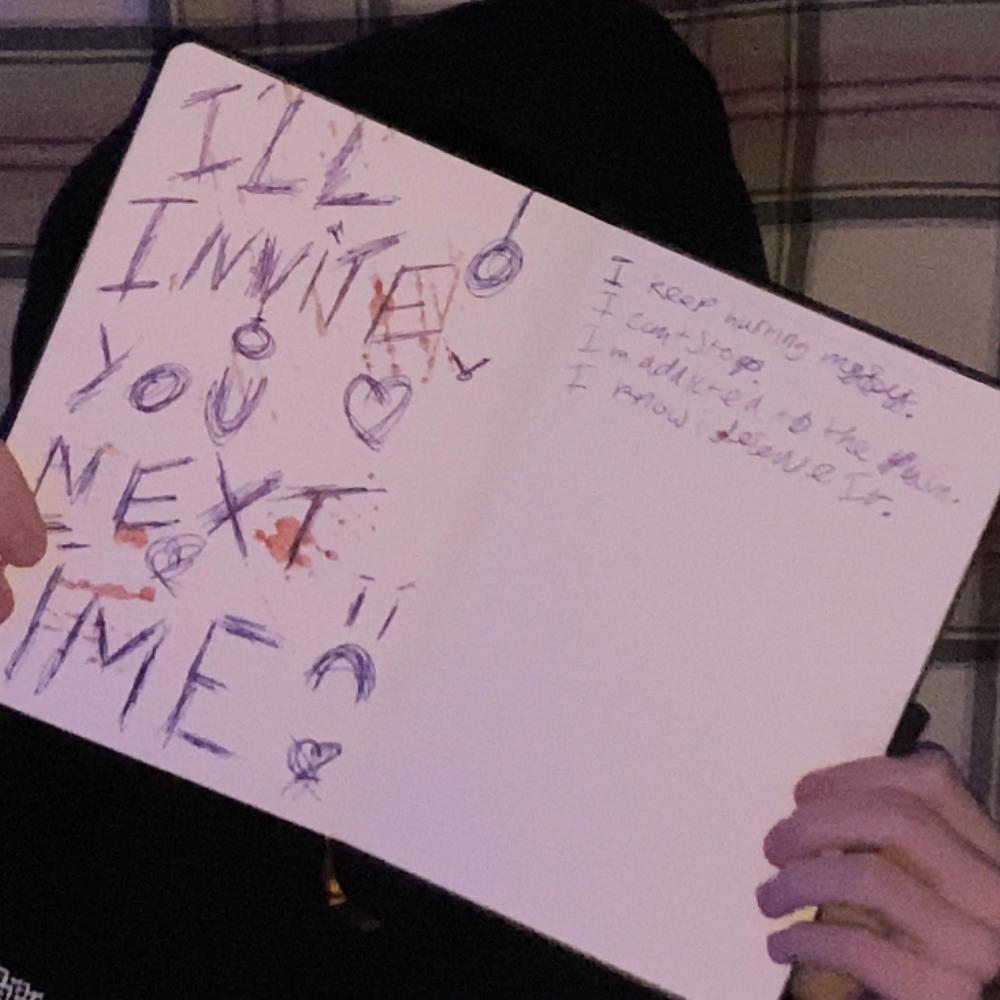 ILL
INViTE
YOU
NEXT
TIME
I keep hurting myself.
I cant stop.
Im addicted to the Pain.
I know i deserve It.